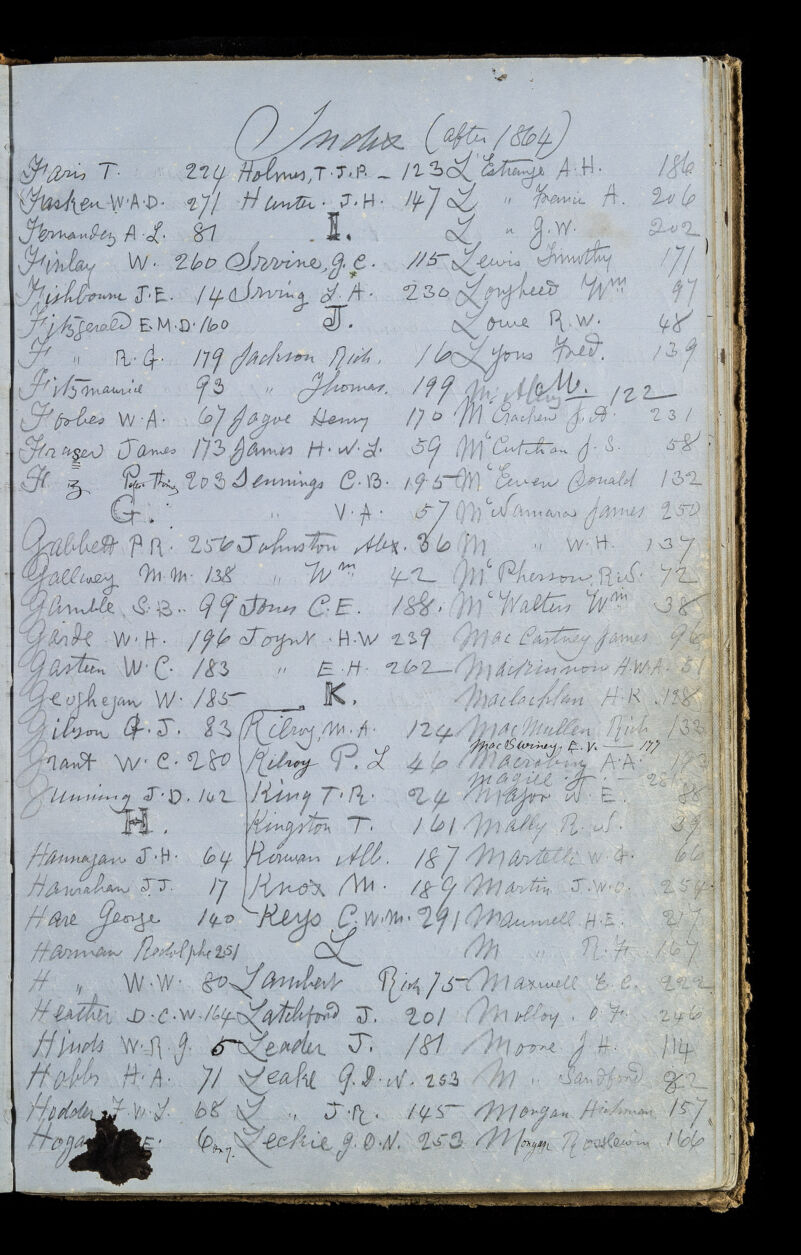 Index (after 1864)
Faris T. 224
Fasken W.A.D. 271
Fernandez A.L. 81
Finlay W. 260
Fishbourne J.E. 14
Fitzgerald E.M.D. 160
F " R.G. 179
Fitzmaurice 93
Forbes W.A. 67
Frazer James 173
203
G.
Gabbett P.R. 256
Gallwey M.M. 138
Gamble S.B. 99
Garde W.H. 196
Gasteen W.C. 183
Geoghegan W. 185
Gibson J. 83
Grant W.C. 280
Gunning J.D. 142
H.
Hannagan J.H. 64
Hanrahan J.J. 17
Hare George 140
Harman Rodolphe 251
H " W.W. 80
Heather D.C.W. 164
Hinds W.R.G. 5
Hobbs H.A. 71
Hodder F.W.L. 68
E. 6
Holmes, T.J.P. - 123
Hunter. J.H. 147
I.
Irvine, G.C. 115
Irving L.A. 230
J.
Jackson Rich. 16
" Thomas. 199
Jagoe Henry 170
James H.W.L. 59
Jennings C.B. 195
" V.A. 57
Johnston Alex. 36
" Wm 42
Jones C.E. 188.
Joynt H.W 239
" E.H. 262
K.
Kilroy, M.A. 124
Kilroy P.L 46
King T.R. 24
Kingston T. 161
Kirwan Alb. 187
Knox M. 189
Keys C.W.M. 291
L
Lambert Rich 75
Latchford J. 201
Leader J. 181
Leake G.D.N. 253
L " J.R. 145
Leckie G.D.N. 253
L'Estrange A.H. 186
L " A. 206
L " G.W. 202
Lewis Timothy 171
Lougheed Wm 97
Lowe R.W. 48
Lyons Fred. 139
M.
122
McCracken J.A. 231
McCutchan J.S. 58
McEwen Donald 132
McNamara James 250
M " W.H. 137
McPherson, R.S. 72
McWalters Wm 38
MacCartney James 96
Mackinnon H.W.A. 51
Maclachlan H.R. 128
MacMullen Rich 133
MacSwiney, E.V. — 177
A.A.
Magill J. —
Major W.E. 88
Mally R.S. 39
Martelli W.G. 66
Martin J.W.O. 254
Maunsell H.E. 217
M " R.F. 167
Maxwell E.C. 222
Molloy. O.F. 246
Moore J H. 114
M " Sandford 82
Morgan Hickman 157
Morgan 166